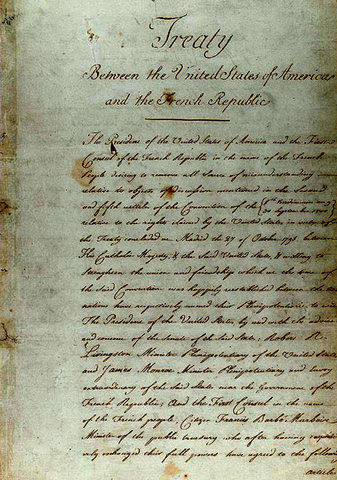 Treaty
Between the United States of America
and the French Republic
The President of the United States of America and the First
Consul of the French Republic in the name of the French
People desiring to remove all Source of misunderstanding
relative to objects of discussion mentioned in the Second
and fifth articles of the Convention of the
relative to the rights claimed by the United States in virtue of
the Treaty concluded at Madrid the 27 of October 1795, between
His Catholic Majesty, & the Said United States, & willing to
Strengthen the union and friendship which at the time of
the Said Convention was happily reestablished between the two
nations have respectively named their Plenipotentiaries to wit
The President of the United States, by and with the advice
and consent of the Senate of the Said States; Robert R.
Livingston Minister Plenipotentiary of the United States
and James Monroe Minister Plenipotentiary and Envoy
extraordinary of the Said States near the Government of the
French Republic; And the First Consul in the name
of the French people, Citizen Francis Barbé Marbois
Minister of the public treasury who after having
exchanged their full powers have agreed to the following
articles